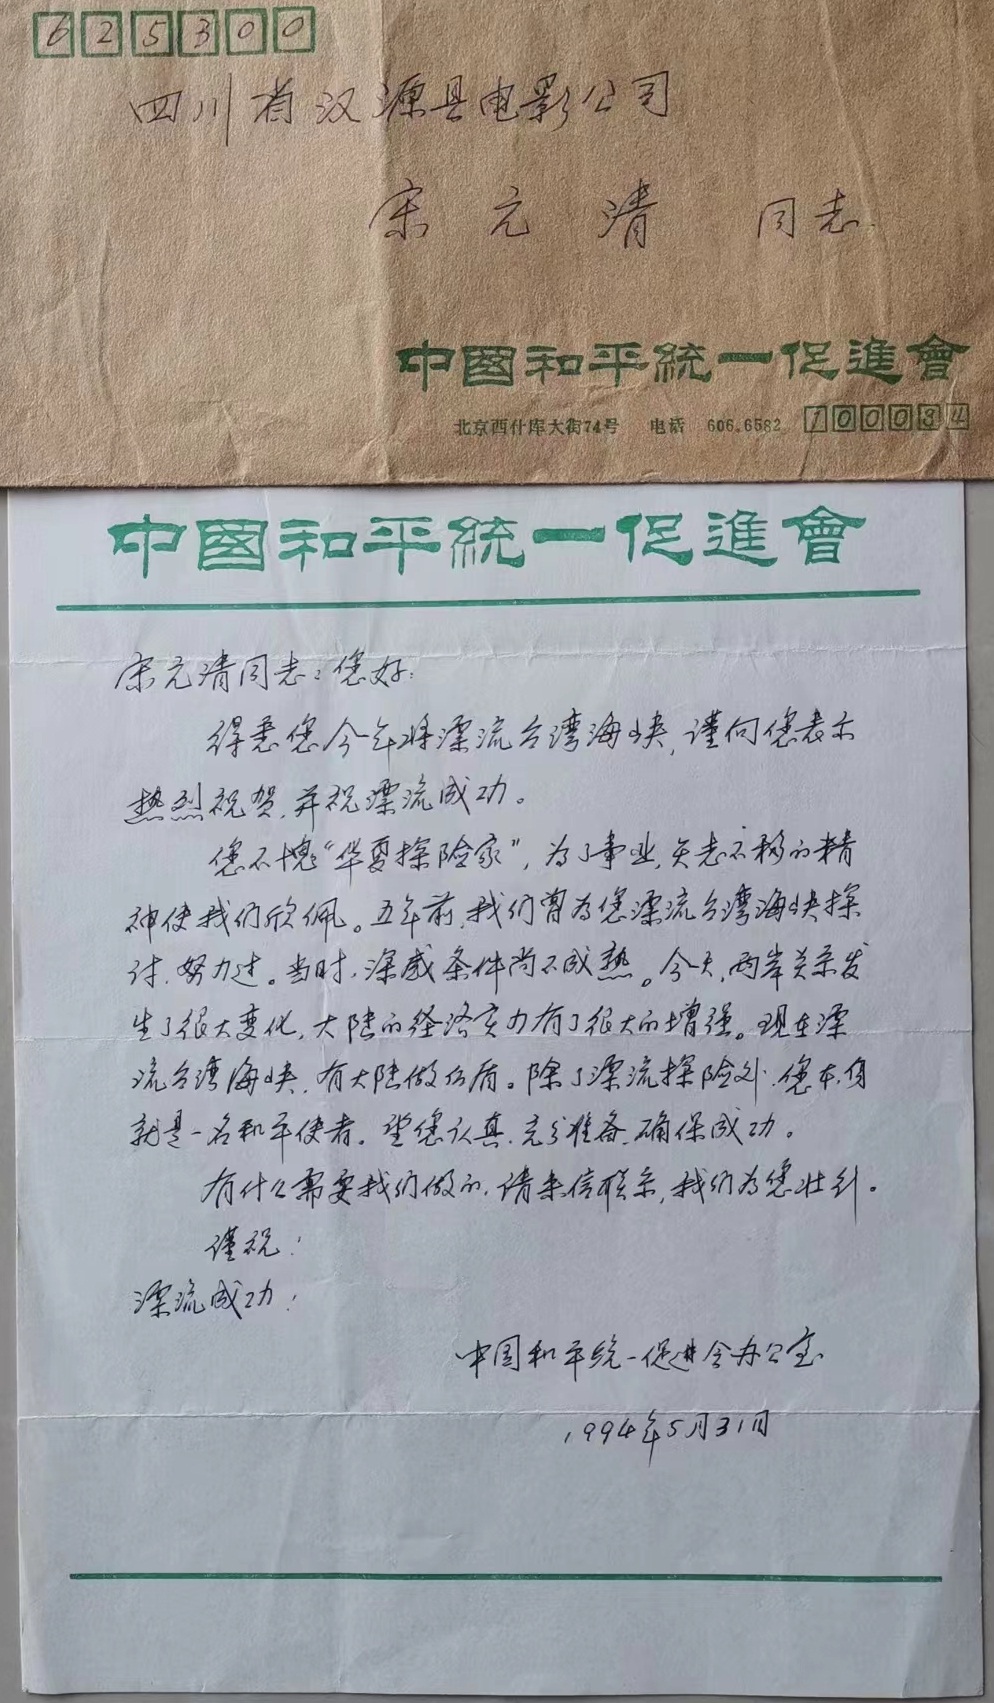 625300
四川省汉源县电影公司
宋元清 同志
中國和平統一促進會
北京西什库大街74号 电话 606.6582 100034
中國和平統一促進會
宋元清同志：您好！
得悉您今年将漂流台湾海峡，谨向您表示
热烈祝贺，并祝漂流成功。
您不愧“华夏探险家”，为了事业，矢志不移的精
神使我们欣佩。五年前，我们曾为您漂流台湾海峡探
讨、努力过。当时，深感条件尚不成熟。今天，两岸关系发
生了很大变化，大陆的经济实力有了很大的增强。现在漂
流台湾海峡，有大陆做后盾。除了漂流探险外，您本身
就是一名和平使者。望您认真、充分准备、确保成功。
有什么需要我们做的，请来信联系，我们为您壮行。
谨祝：
漂流成功！
中国和平统一促进会办公室
1994年5月31日